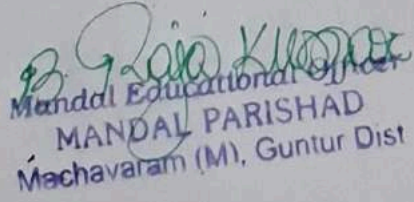 B. Raja Kumar
Mandal Educational Officer
MANDAL PARISHAD
Machavaram (M), Guntur Dist